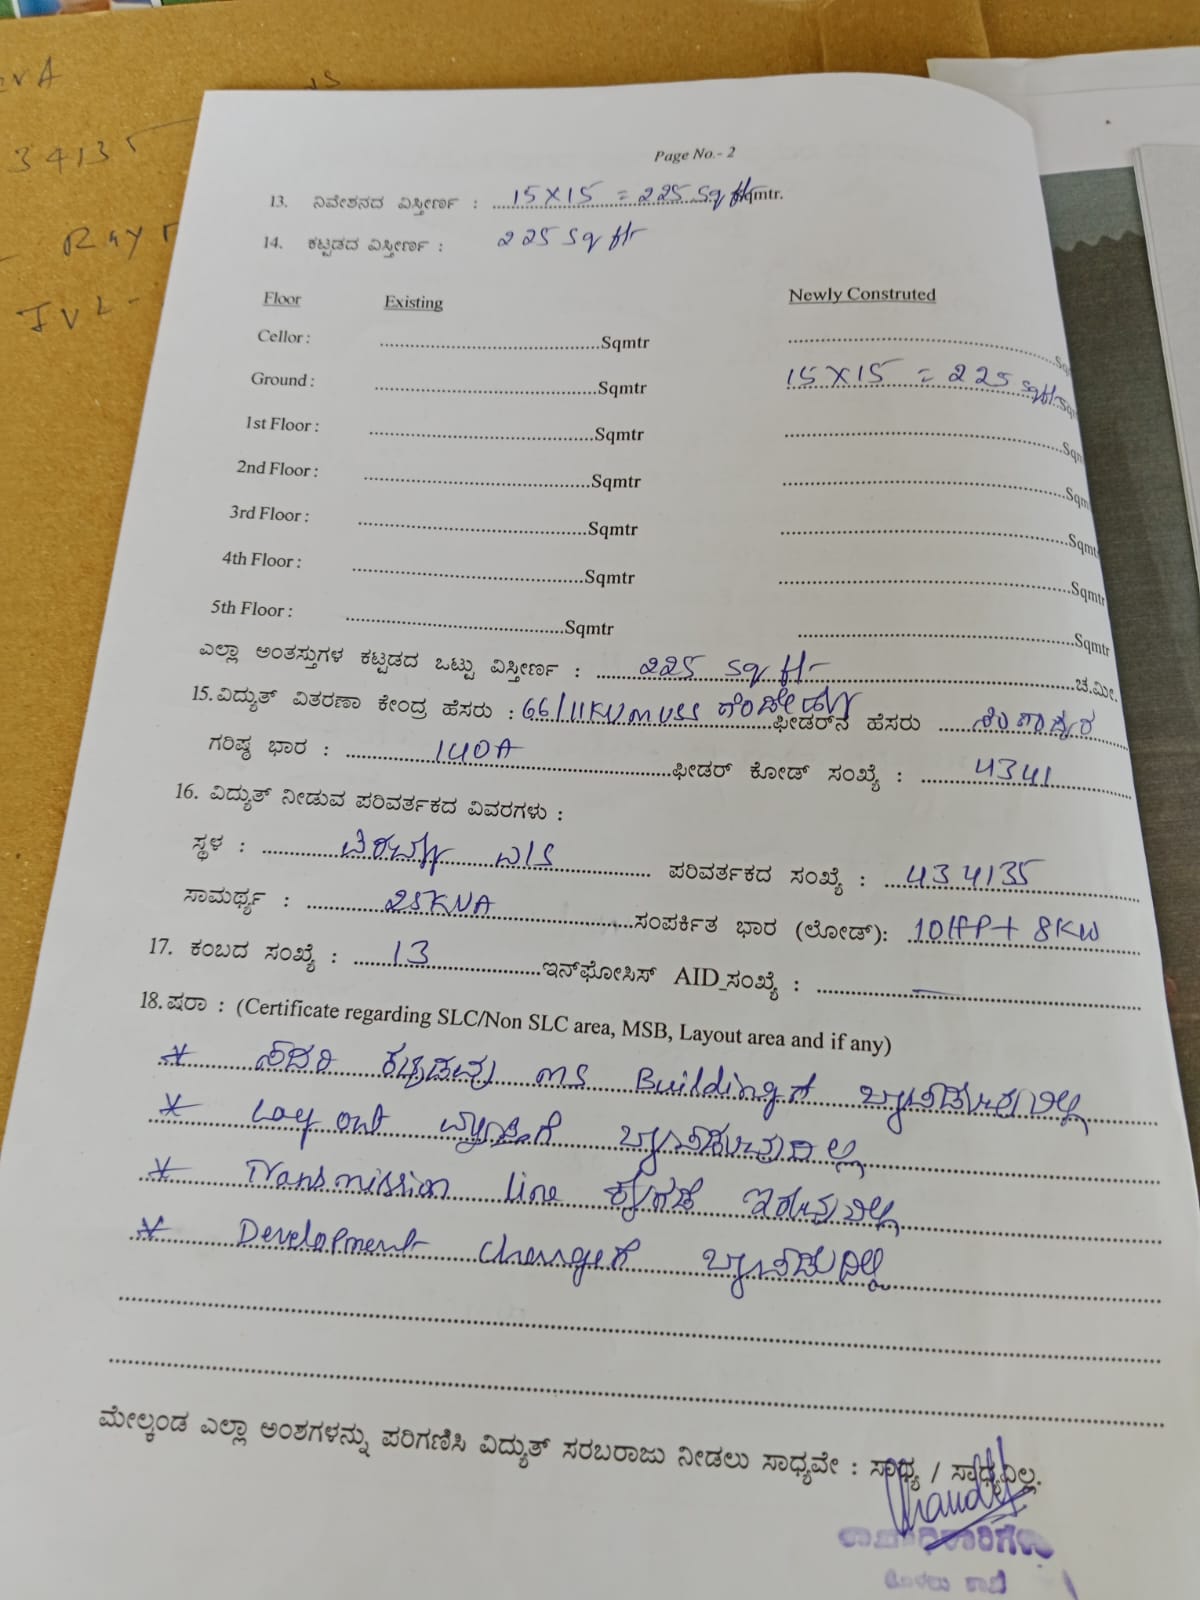 34135
Page No.- 2
13. ನಿವೇಶನದ ವಿಸ್ತೀರ್ಣ : 15X15 = 225 Sq ft Sqmtr.
14. ಕಟ್ಟಡದ ವಿಸ್ತೀರ್ಣ : 225 Sq ft
Floor Existing Newly Construted
Cellor : Sqmtr
Ground : Sqmtr 15X15 = 225 sqft
1st Floor : Sqmtr Sqm
2nd Floor : Sqmtr Sqm
3rd Floor : Sqmtr Sqmt
4th Floor : Sqmtr Sqmtr
5th Floor : Sqmtr Sqmtr
ಎಲ್ಲಾ ಅಂತಸ್ತುಗಳ ಕಟ್ಟಡದ ಒಟ್ಟು ವಿಸ್ತೀರ್ಣ : 225 Sq ft ಚ.ಮೀ.
15. ವಿದ್ಯುತ್ ವಿತರಣಾ ಕೇಂದ್ರ ಹೆಸರು : 66/11KV MUSS ಫೀಡರ್‌ನ ಹೆಸರು
ಗರಿಷ್ಠ ಭಾರ : 140A ಫೀಡರ್ ಕೋಡ್ ಸಂಖ್ಯೆ : 4341
16. ವಿದ್ಯುತ್ ನೀಡುವ ಪರಿವರ್ತಕದ ವಿವರಗಳು :
ಸ್ಥಳ : ಪರಿವರ್ತಕದ ಸಂಖ್ಯೆ : 434135
ಸಾಮರ್ಥ್ಯ : 25KVA ಸಂಪರ್ಕಿತ ಭಾರ (ಲೋಡ್): 10HP+ 8KW
17. ಕಂಬದ ಸಂಖ್ಯೆ : 13 ಇನ್‌ಫೋಸಿಸ್ AID_ಸಂಖ್ಯೆ : —
18. ಷರಾ : (Certificate regarding SLC/Non SLC area, MSB, Layout area and if any)
* ಸದರಿ ಕಟ್ಟಡವು MS Buildingಗೆ
* Layout
* Transmission line ಕೆಳಗಡೆ ಇರುವುದಿಲ್ಲ
* Development
ಮೇಲ್ಕಂಡ ಎಲ್ಲಾ ಅಂಶಗಳನ್ನು ಪರಿಗಣಿಸಿ ವಿದ್ಯುತ್ ಸರಬರಾಜು ನೀಡಲು ಸಾಧ್ಯವೇ : ಸಾಧ್ಯ / ಸಾಧ್ಯವಿಲ್ಲ.